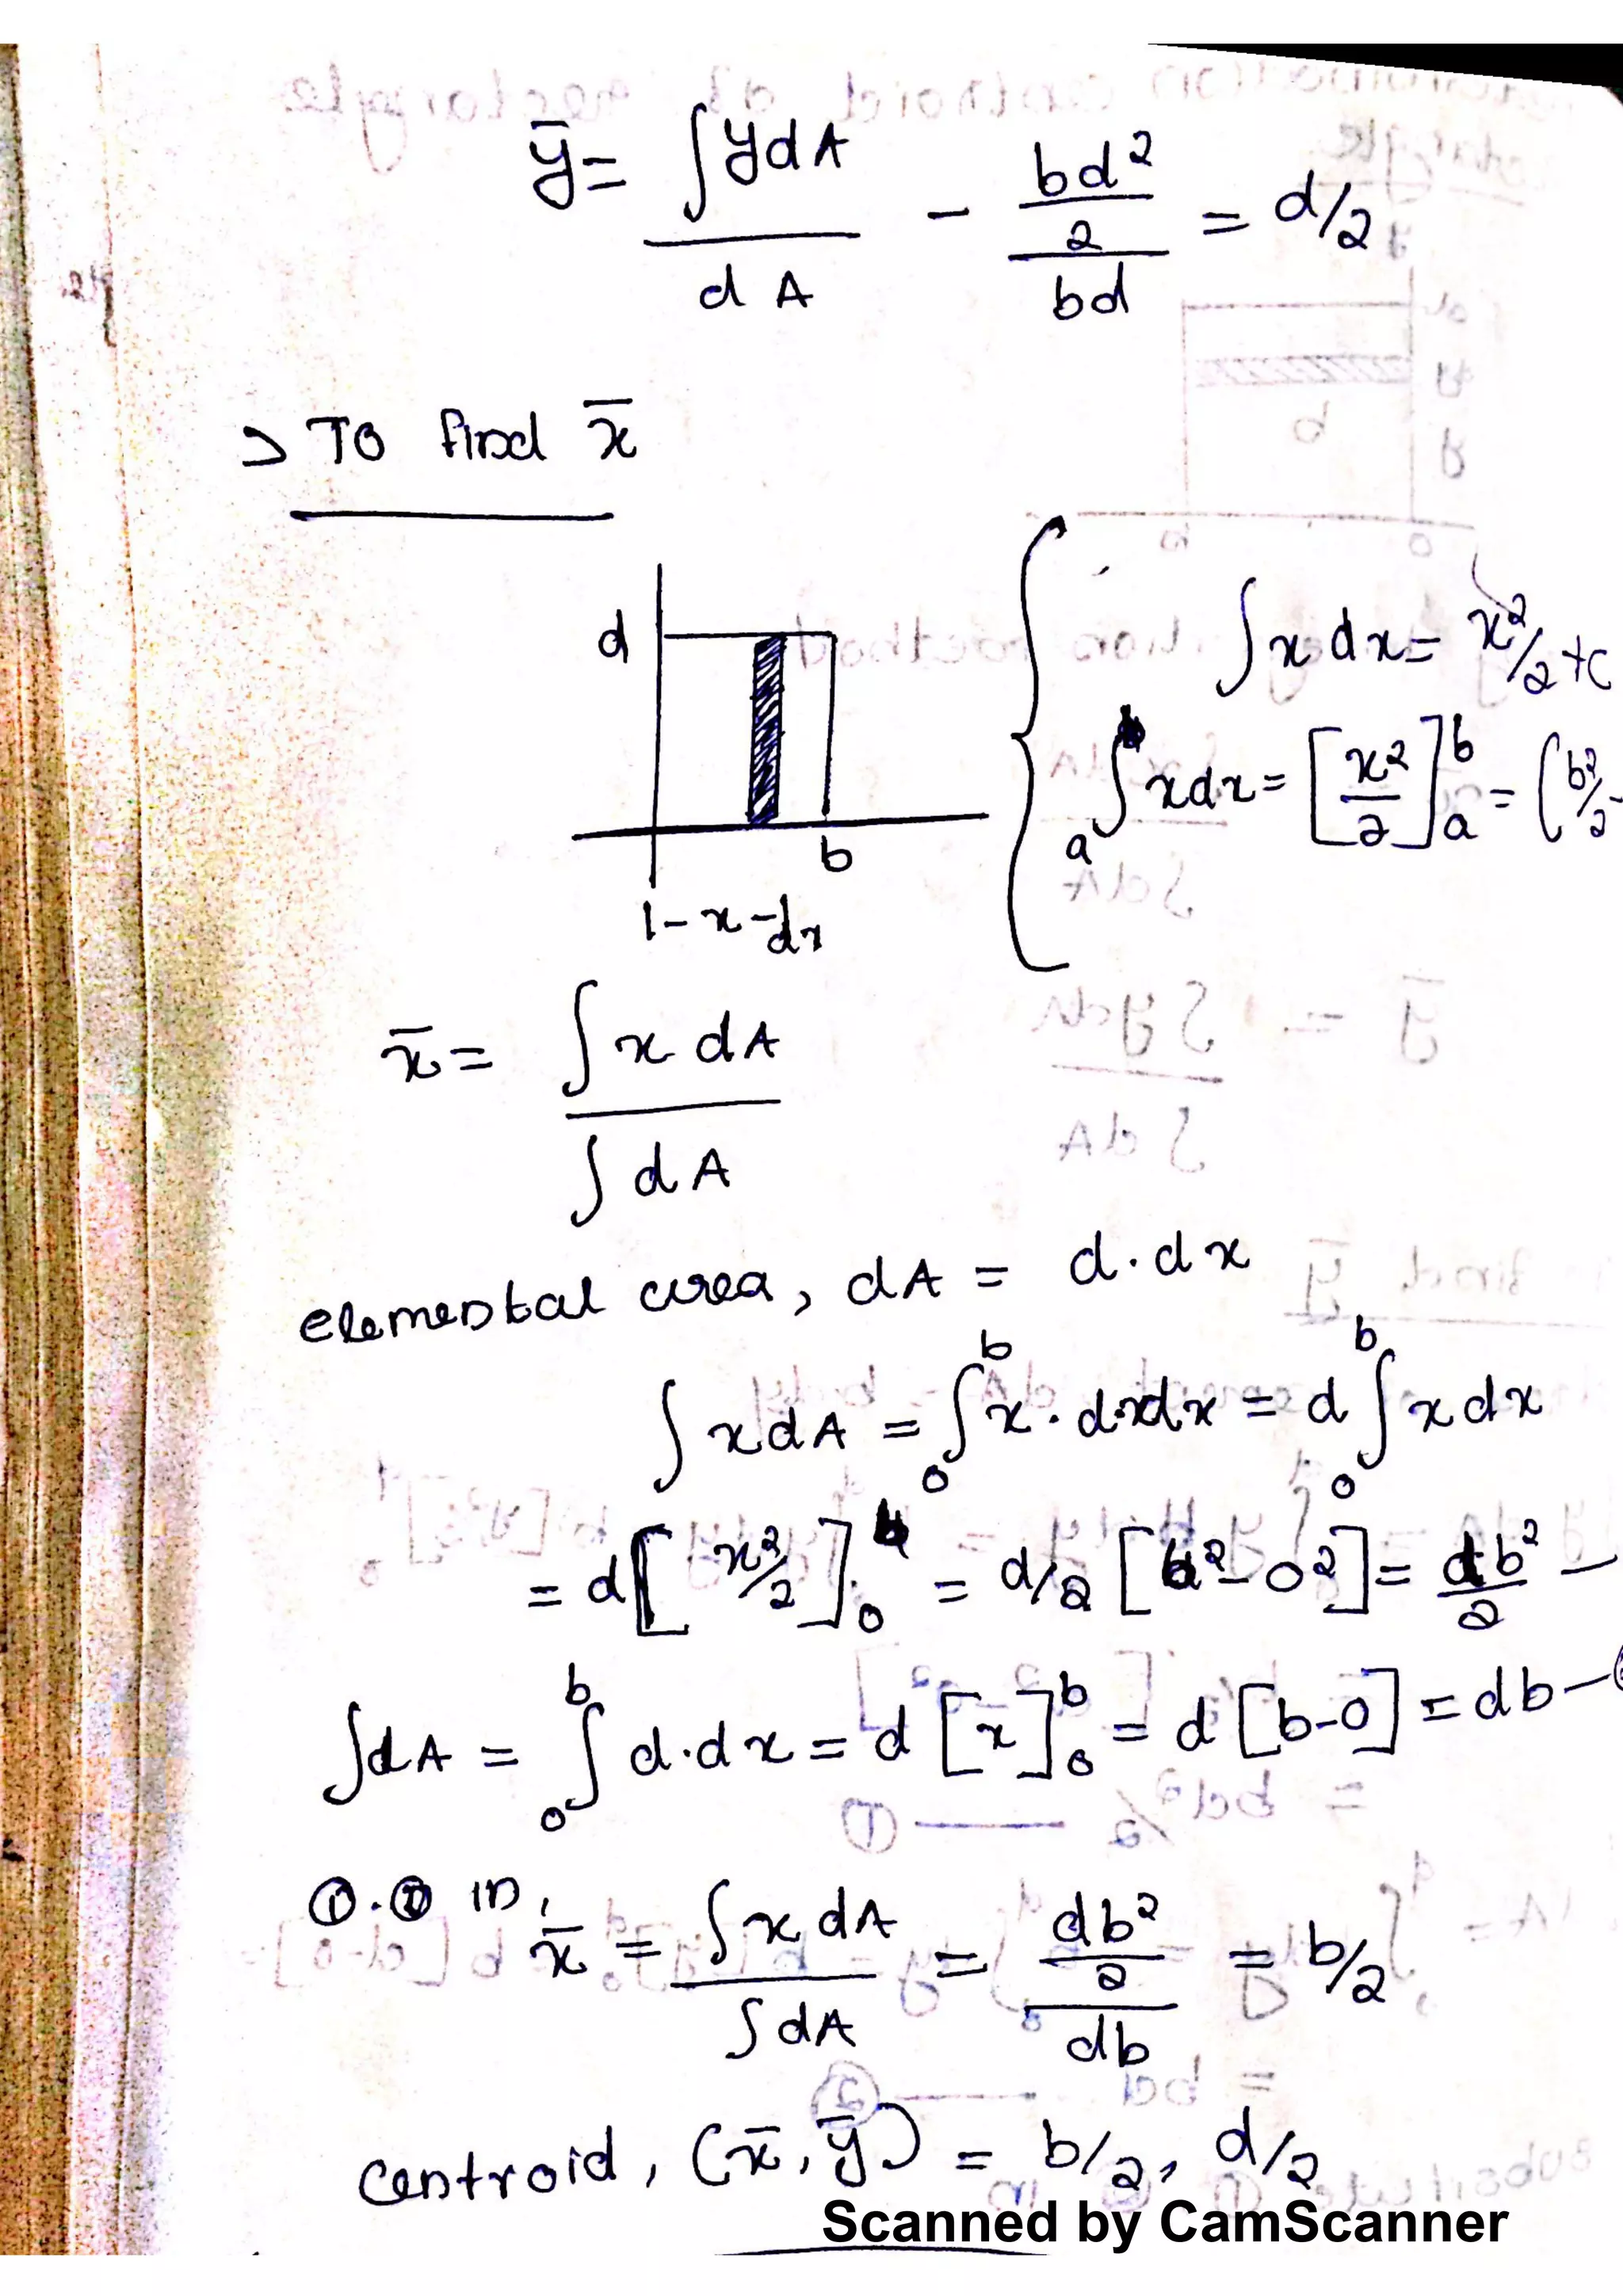 ȳ = ∫ydA / dA - (bd²/2) / bd = d/2
> To find x̄
d
∫x dx = x²/2 + c
ₐ∫ᵇ xdx = [x²/2]ₐᵇ = (b²/2 -
b
1 - x - dx
x̄ = ∫x dA / ∫dA
elemental area, dA = d.dx
∫xdA = ₀∫ᵇ x.d.xdx = d ₀∫ᵇ xdx
= d[x²/2]₀ᵇ = d/2 [b² - 0²] = db²/2 —
∫dA = ₀∫ᵇ d.dx = d[x]₀ᵇ = d[b-0] = db —
①.② in,
x̄ = ∫x dA / ∫dA = (db²/2) / db = b/2
centroid, (x̄, ȳ) = b/2, d/2
Scanned by CamScanner